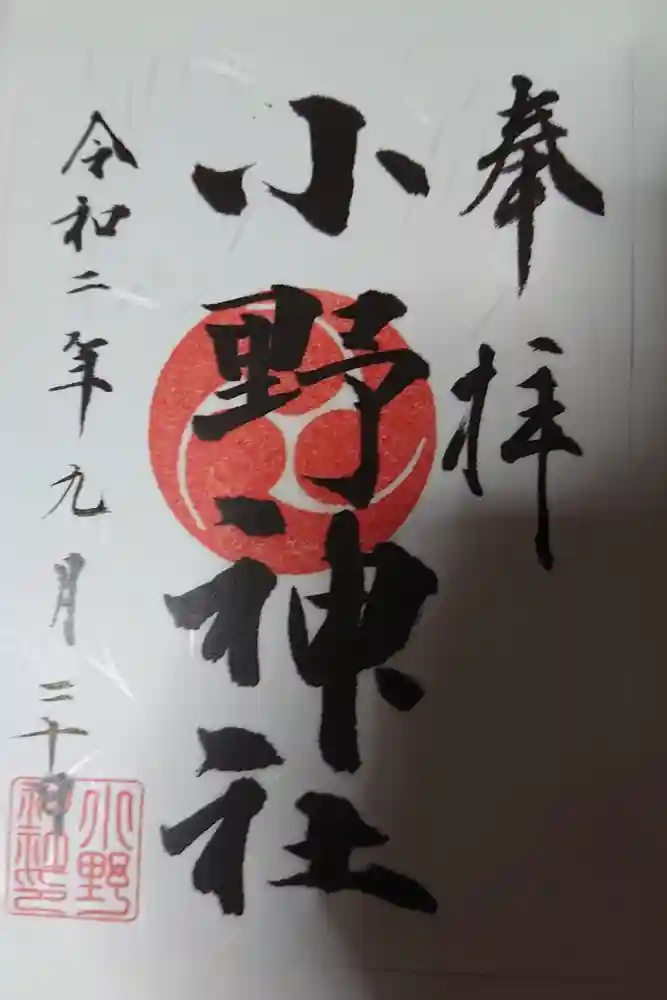 奉拝
小野神社
令和二年九月二十日
小野
神社印